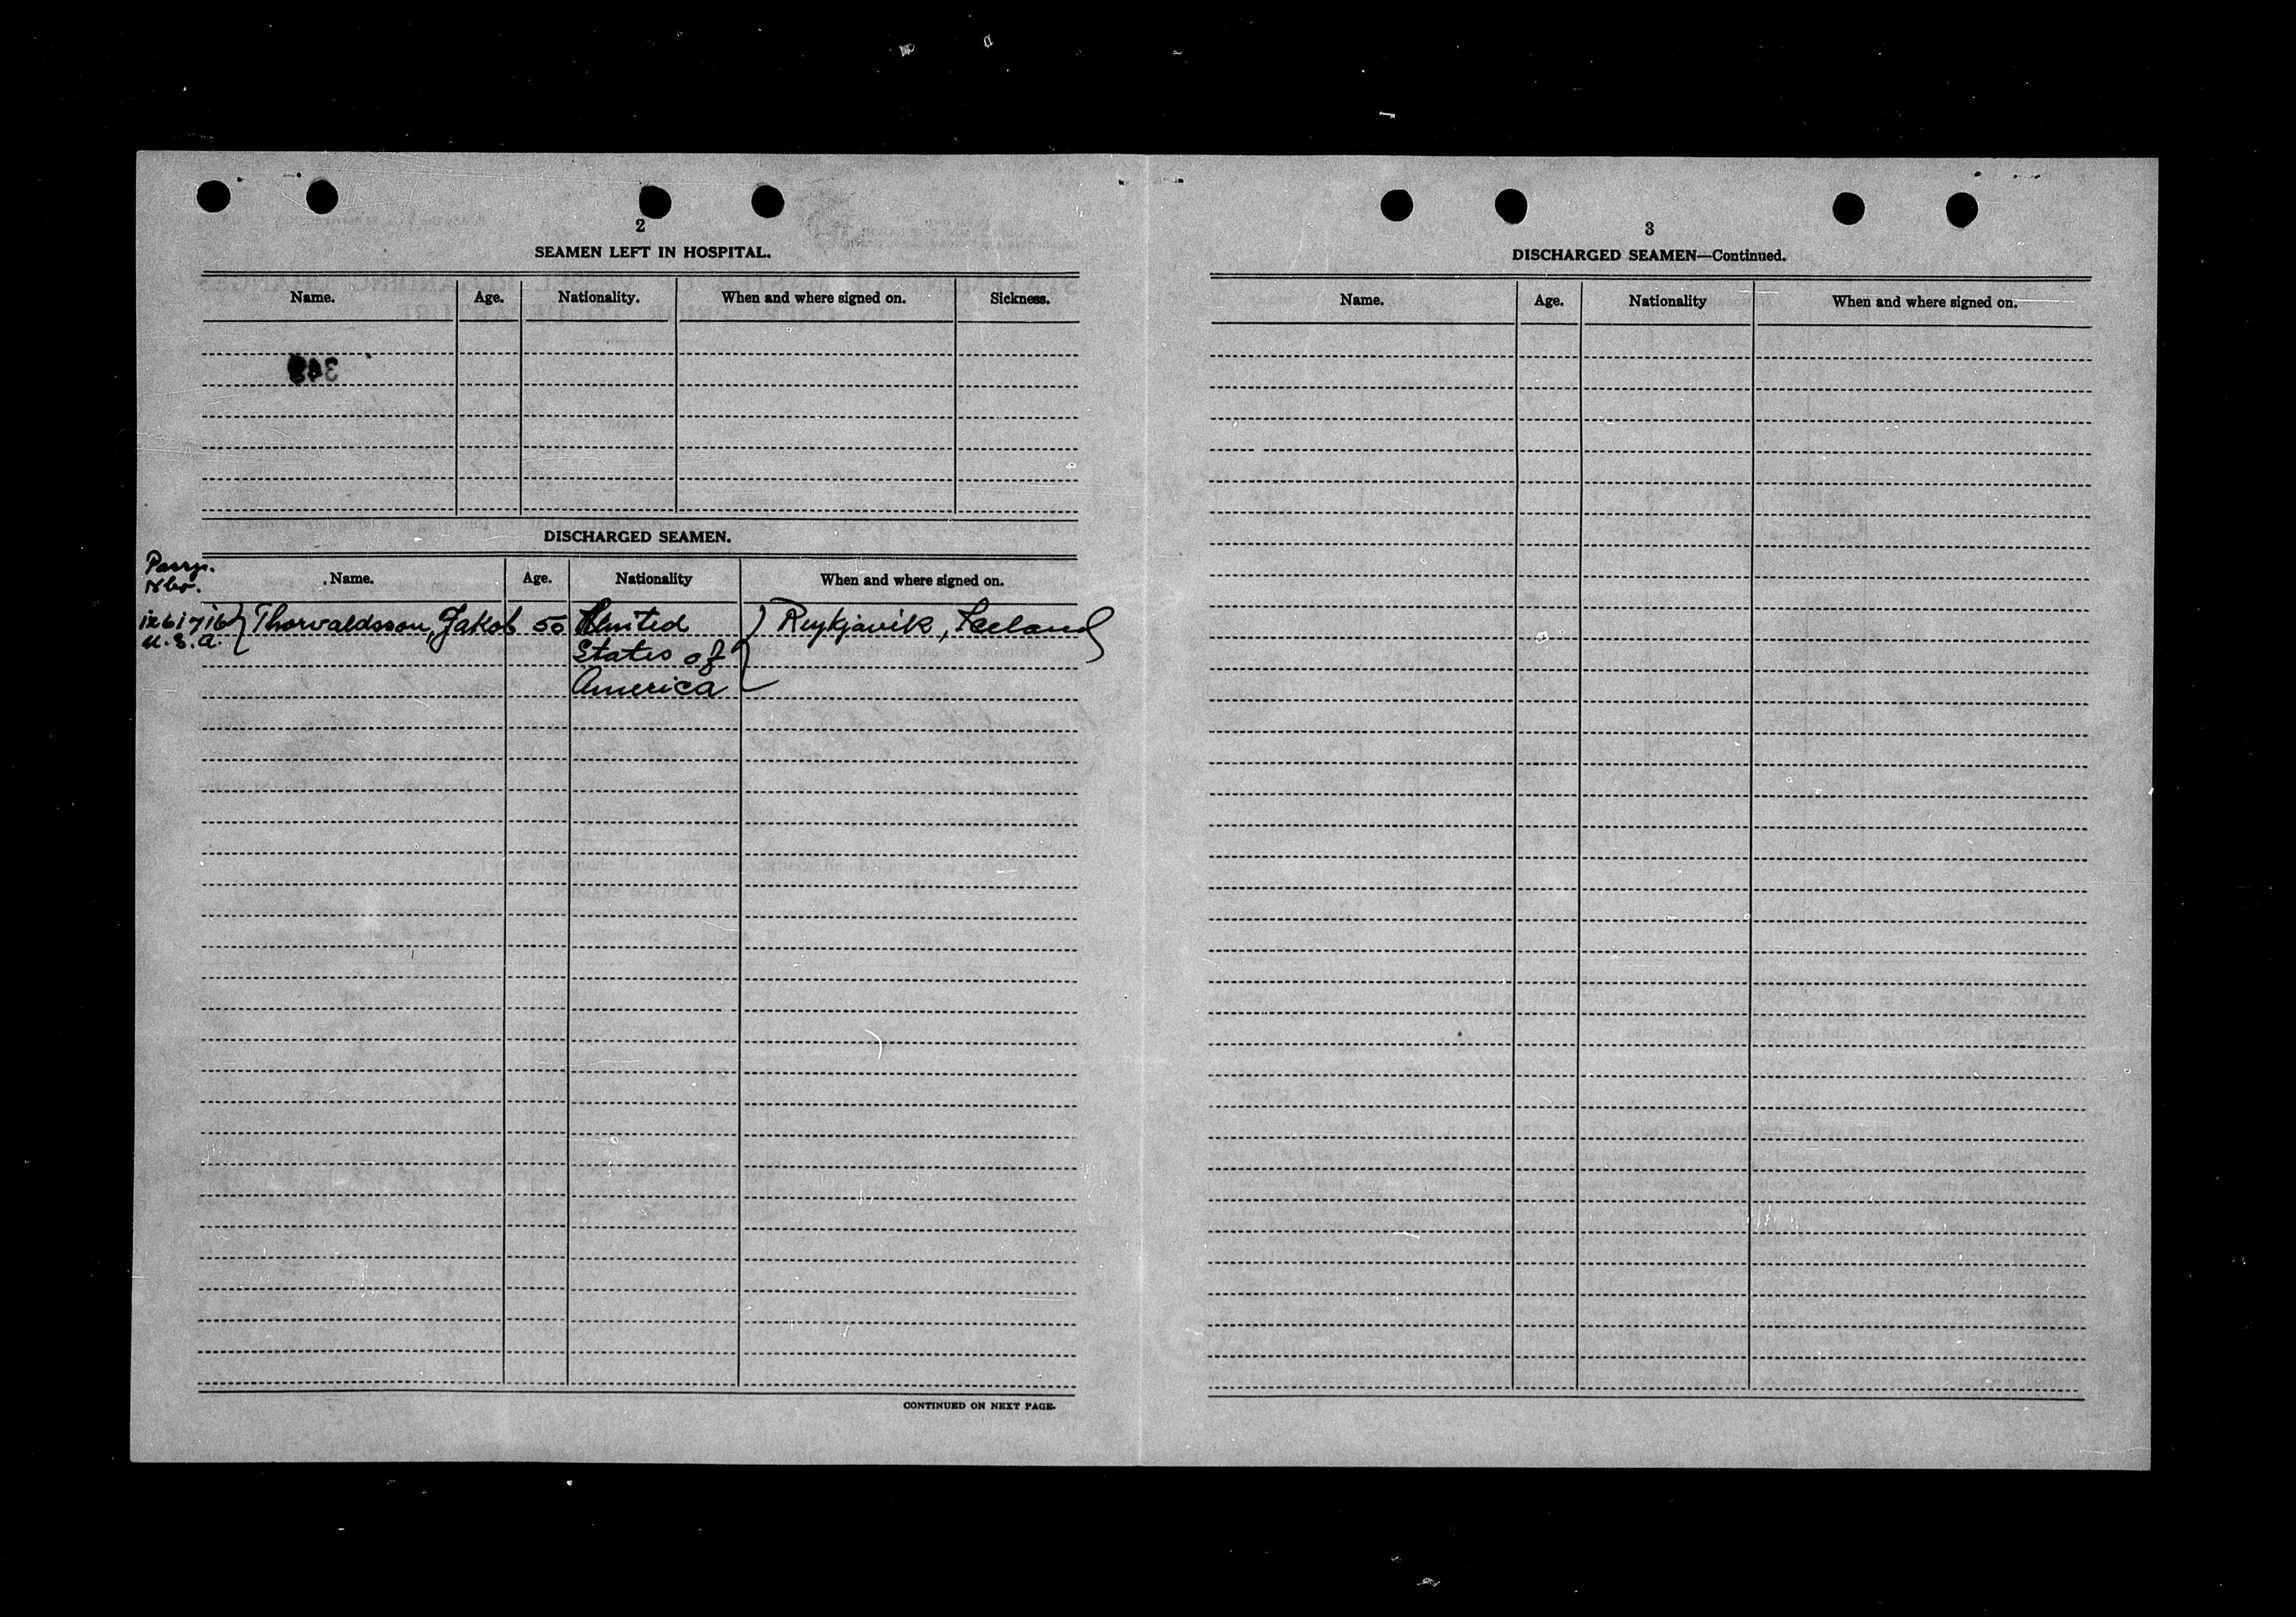 2
SEAMEN LEFT IN HOSPITAL.
Name. Age. Nationality. When and where signed on. Sickness.
DISCHARGED SEAMEN.
Nbr.
Name. Age. Nationality When and where signed on.
1261716 Thorvaldsson, Jakob 50 United Reykjavik, Iceland
U.S.A. States of
America
CONTINUED ON NEXT PAGE.
3
DISCHARGED SEAMEN—Continued.
Name. Age. Nationality When and where signed on.